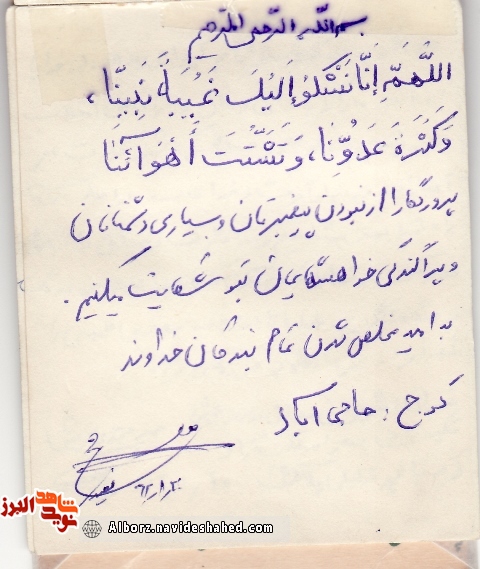 بسم الله الرحمن الرحیم
اللَّهُمَّ اِنَّا نَشْکُو اِلَیْكَ غَیْبَةَ نَبِیِّنَا،
وَ کَثْرَةَ عَدُوِّنَا، وَ تَشَتُّتَ اَهْوَائَنَا
پروردگارا از نبودن پیغمبرمان و بسیاری دشمنانمان
و پراکندگی خواهشهایمان بتو شکایت میکنیم.
بامید مخلص شدن تمام بندگان خداوند
کرج: حاجی آباد
نوید شاهد البرز
Alborz.navideshahed.com